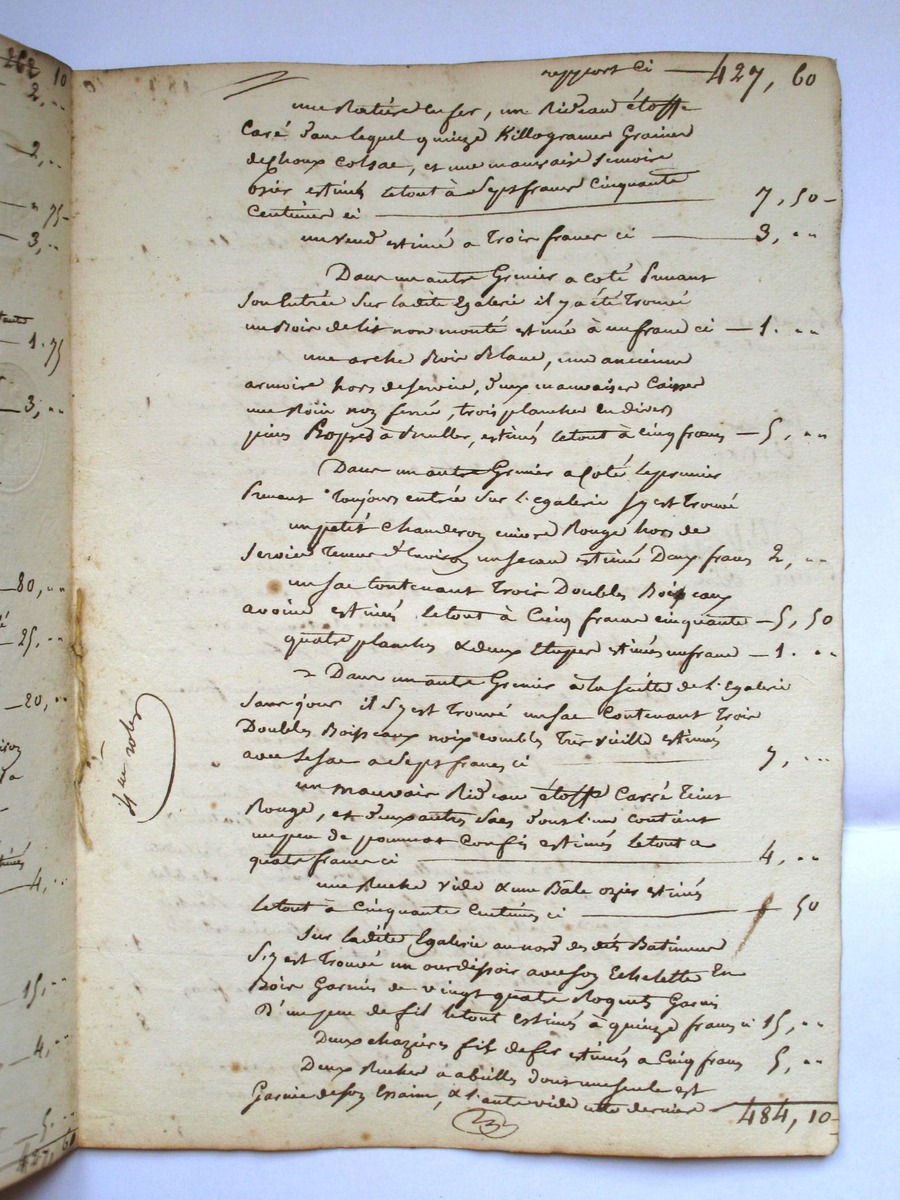 262 10
2, ..
2, ..
" 75-
3, ..
1. 75
3, ..
80, ..
25, ..
20, ..
4, ..
15, ..
4, ..
5. ..
427, 60
rapport ci — 427, 60
une Ratière en fer, un Rideau étoffe
Caré dans lequel quinze Killogrames Graines
de choux colsac, et une mauvaise Semoire
osier estimés le tout à Sept francs Cinquante
Centimes ci — 7, 50-
un vend estimé a Trois francs ci — 3, ..
Dans un autre Grenier a coté Prenant
Son Entrée Sur ladite Egalerie il y a été Trouvé
un Bois de lit non monté estimé à un franc ci — 1. ..
une arche Bois Blanc, une ancienne
armoire hors de Service, deux mauvaises Caisses
une noz ferrée, trois planches en divers
pièces à estimés le tout à Cinq francs — 5, ..
Dans un autre Grenier a Coté le premier
Prenant Toujours entrée Sur l'Egalerie Sy est Trouvé
un petit Chanderoz cuivre Rouge hors de
Service Teneur d'Environ un Seau estimé Deux francs 2, ..
un Sac Contenant Trois Doubles Boisseaux
avoine estimés le tout à Cinq francs cinquante — 5, 50
quatre planches & deux Etupes estimés un franc — 1. ..
Dans un autre Grenier à la Suitte de l'Egalerie
Sans jour il Sy est Trouvé un Sac Contenant Trois
Doubles Boisseaux noix combles Très vieille estimés
avec le Sac a Sept francs ci — 7, ..
un mauvais Rideau étoffe Carré Teint
Rouge, et deux autres Sacs dont l'un contient
un peu de pommes Confis estimés le tout a
quatre francs ci — 4, ..
une Ruche vide & une Bâle ozier estimés
le tout à Cinquante Centimes ci — 50
Sur ladite Egalerie au nord des dits Batiments
S'y est Trouvé un ourdissoir avec Soz Echelette En
Bois Garnis de vingt quatre Roquets Garnis
D'un peu de fil le tout estimés à quinze francs ci 15, ..
Deux chazières fil de fer estimés a Cinq francs 5, ..
Deux Ruches a abeilles dont une Seule est
Garnie de Soz Essaim, & l'autre vide cette dernière — 484, 10-